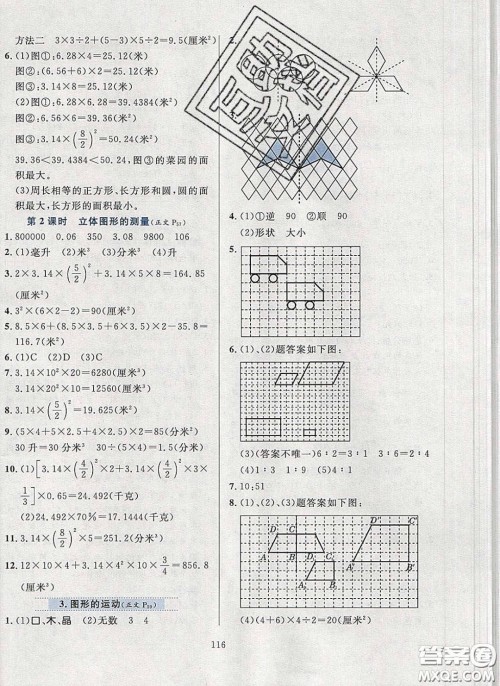 方法二 3×3÷2+(5-3)×5=9.5(厘米²)
6.(1)图①:6.28×4=25.12(米)
图②:(6.56+6)×2=25.12(米)
图③:3.14×8=25.12(米)
(2)图①:6.28×6.28=39.4384(米²)
图②:6.56×6=39.36(米²)
图③:3.14×(8/2)²=50.24(米²)
39.36<39.4384<50.24,图③的菜园的面
积最大。
(3)周长相等的正方形、长方形和圆,圆的面
积最大。
第2课时 立体图形的测量(正文P57)
1.800000 0.06 350 3.08 9800 106
2.(1)毫升 (2)米 (3)分米³ (4)升
3.2×3.14×(5/2)²+3.14×5×8=164.85
(厘米²)
4.3²×(6×2-2)=90(厘米²)
5.8.5×6+(8.5×3.5+6×3.5)×2-35.8=
116.7(米²)
6.(1)C (2)D (3)C
7.3.14×10²×20=6280(厘米³)
3.14×10²×20=12560(厘米³)
8.3.14×(5/2)²=19.625(米²)
9.(5×4+5×2.5+4×2.5)×2=85(分米²)
30升=30分米³ 30÷(5×4)=1.5(分米)
10.(1)[3.14×(4/2)²×2+3.14×(4/2)²×3×
1/3]×0.65=24.492(千克)
(2)24.492×70%=17.1444(千克)
11.3.14×(8/2)²×5=251.2(厘米³)
12.10×10×4+3.14×4²×10×=856.8
(厘米³)
3.图形的运动(正文P59)
1.(1)口、木、晶 (2)无数 3 4
2.
4.(1)①逆 90 ②顺 90
(2)形状 大小
5.
6.(1)、(2)题答案如下图:
(3)(答案不唯一)6:2=3:1 3:6=2:4
(4)1:3 1:9
7.10;51
8.(1)、(2)、(3)题答案如下图:
D C D″ C″
A B A″ B″
(4)(4+6)×4÷2=20(厘米²)
116